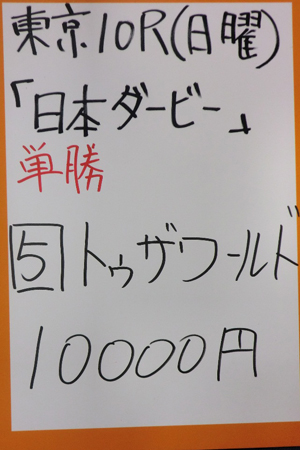 東京10R(日曜)
「日本ダービー」
単勝
5 トゥザワールド
10000円